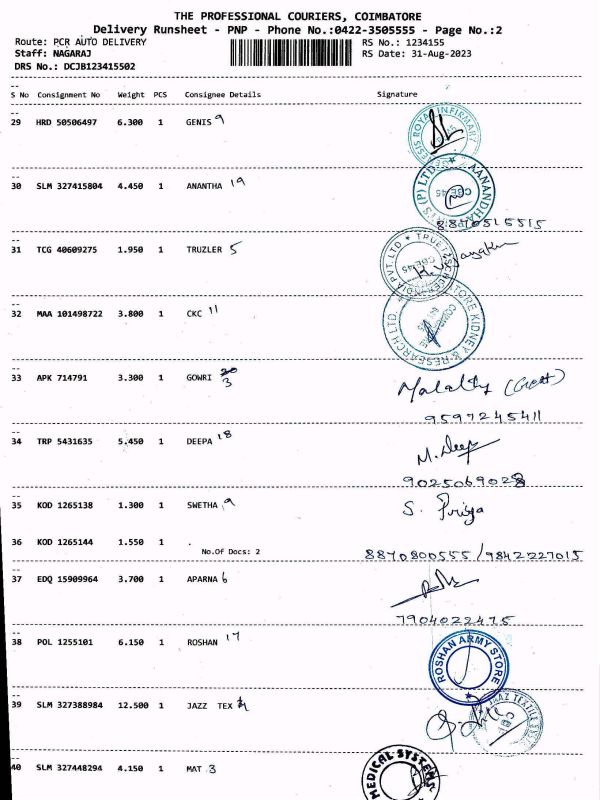 THE PROFESSIONAL COURIERS, COIMBATORE
Delivery Runsheet - PNP - Phone No.:0422-3505555 - Page No.:2
Route: PCR AUTO DELIVERY RS No.: 1234155
Staff: NAGARAJ RS Date: 31-Aug-2023
DRS No.: DCJB123415502
S No Consignment No Weight PCS Consignee Details Signature
29 HRD 50506497 6.300 1 GENIS 9
30 SLM 327415804 4.450 1 ANANTHA 19
AANANDHA
CBE-45
8870515515
31 TCG 40609275 1.950 1 TRUZLER 5
CBE-45
32 MAA 101498722 3.800 1 CKC 11
KIDNEY & RESEARCH LTD.
33 APK 714791 3.300 1 GOWRI 20 3
9597245411
34 TRP 5431635 5.450 1 DEEPA 18
M. Deep
9025069028
35 KOD 1265138 1.300 1 SWETHA 9
S. Priya
36 KOD 1265144 1.550 1 .
No.Of Docs: 2
8870800555 / 9842227015
37 EDQ 15909964 3.700 1 APARNA 6
7904022475
38 POL 1255101 6.150 1 ROSHAN 17
ROSHAN ARMY STORE
39 SLM 327388984 12.500 1 JAZZ TEX
40 SLM 327448294 4.150 1 MAT 3
MEDICAL SYSTEMS